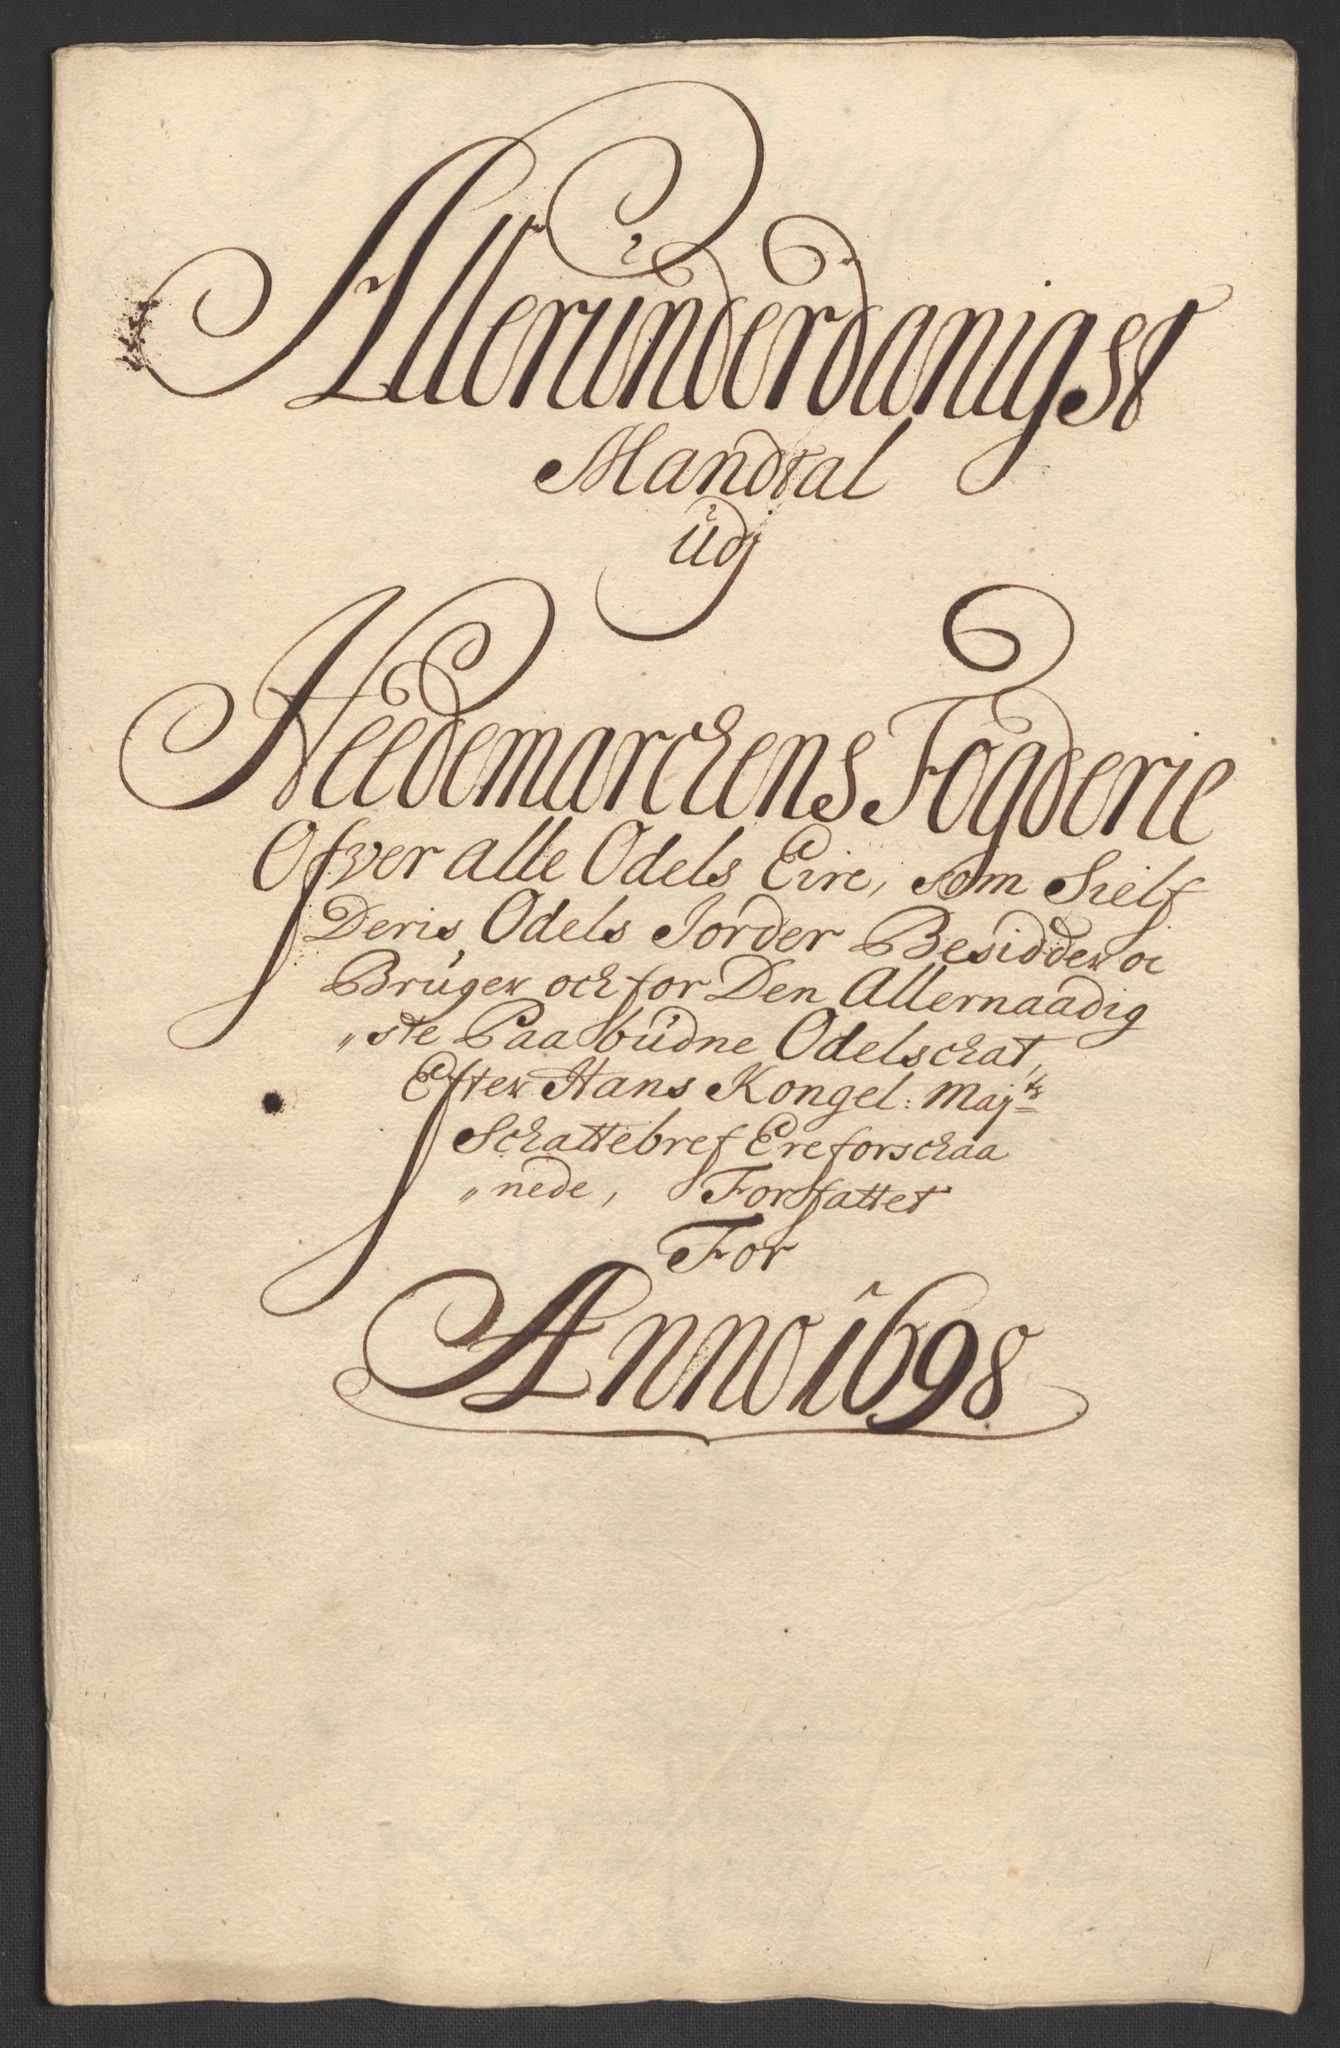 Allerúnderdanigst
Mandtal
údj
Heedemarchens Fogderie
Ofver alle Odels Eire, som Sielf
Deris Odels Jorder Besidder oc
Brúger och for Den Allernaadig
„ste Paabúdne Odelschat,
Efter Hans Kongel: Maj:ts
Schattebref Ere forschaa
„nede, Forfattet
For
Anno 1698